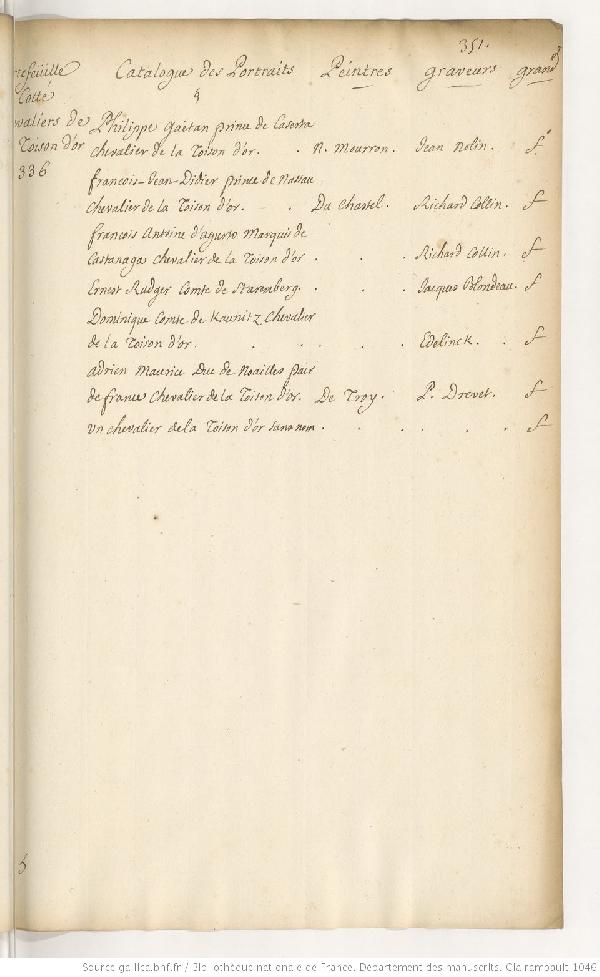 351.
tefeüille Catalogue des Portraits Peintres graveurs grand.r
Cotté
valiers de
Toison d'or
336
Philippe Gaëtan prince de Caserta
Chevalier de la Toison d'or. . N. Mourron. Jean Nolin. f.o
françois-Jean-Didier prince de Nassau
Chevalier de la Toison d'or. . . Du Chastel. Richard Collin. f
françois Antoine d'agurto Marquis de
Castanaga Chevalier de la Toison d'or . . . Richard Collin. f
Ernest Rudger Comte de Staremberg. . . . Jacques Blondeau. f
Dominique Comte de Kaunitz Chevalier
de la Toison d'or. . . . . . Edelinck. . f
adrien Maurice Duc de Noailles pair
de france Chevalier de la Toison d'or. De Troy. P. Drevet. f
un chevalier de la Toison d'or sans nom . . . . . . f
Source gallica.bnf.fr / Bibliothèque nationale de France. Département des manuscrits. Clairambault 1046